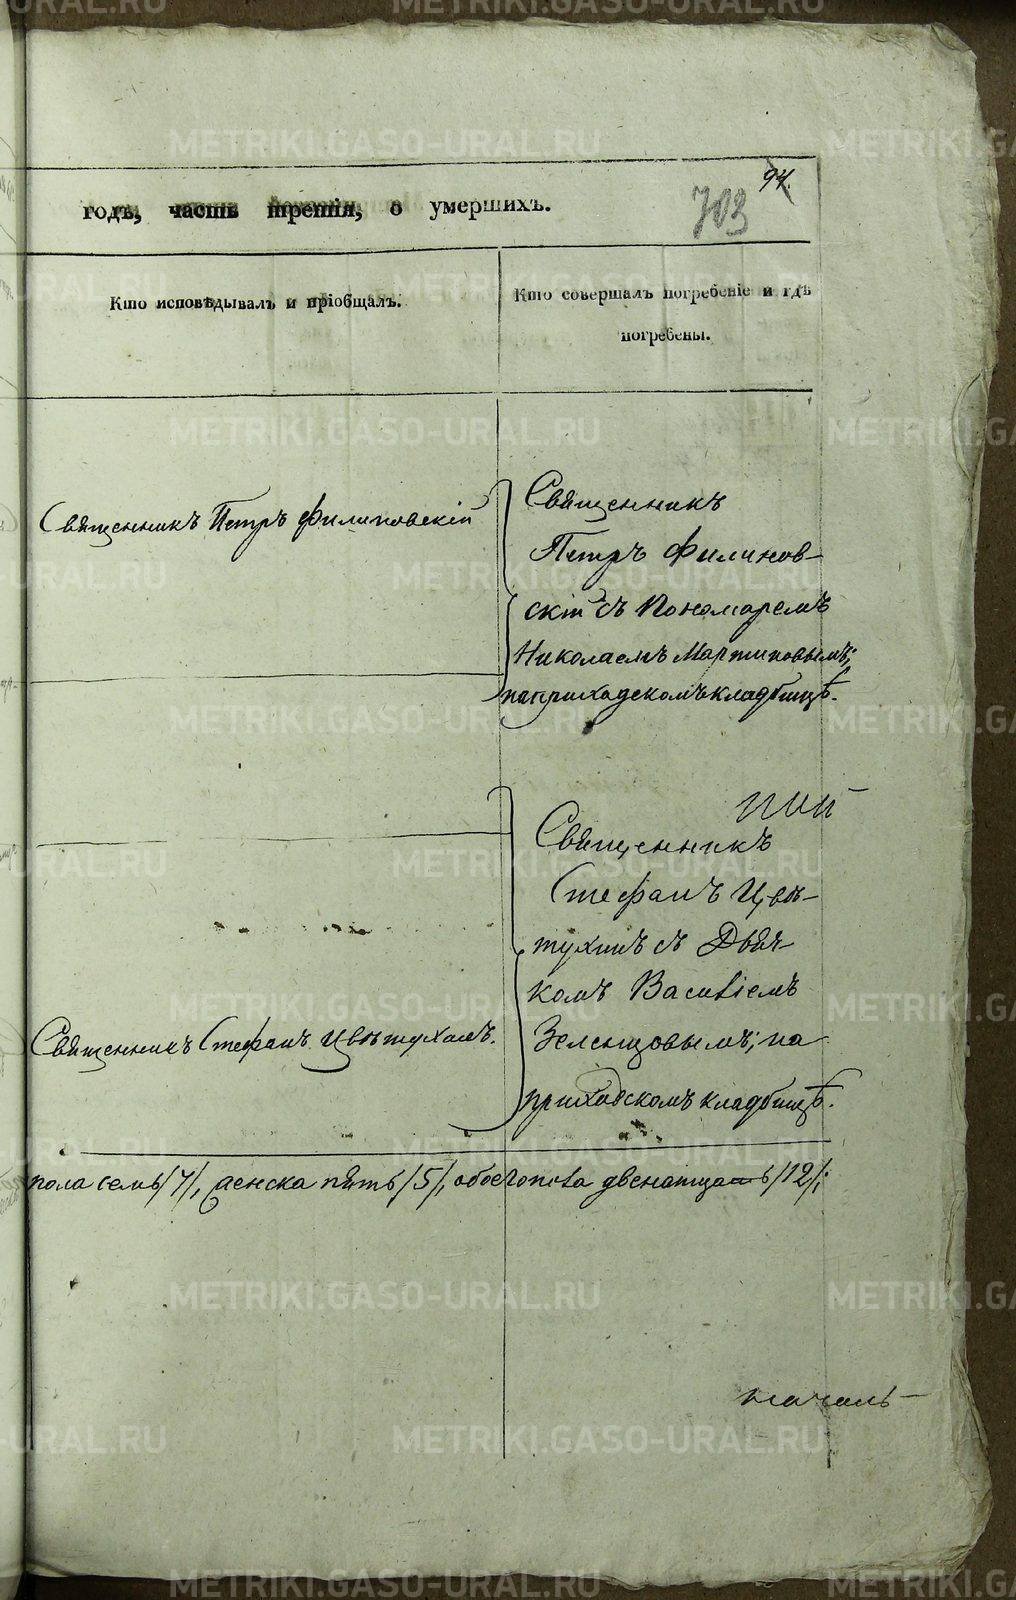 94.
703
годъ, часть третія, о умершихъ.
Кто исповѣдывалъ и пріобщалъ.
Кто совершалъ погребеніе и гдѣ
погребены.
Священникъ Петръ Филиповскій
Священникъ
Петръ Филипов-
скій съ Пономаремъ
Николаемъ Мартиновымъ;
на приходскомъ кладбищѣ.
Священникъ
Стефанъ Цвѣ-
тухинъ съ Дьяч-
комъ Василіемъ
Зеленцовымъ; на
приходскомъ кладбищѣ.
Священникъ Стефанъ Цвѣтухинъ.
пола семь /7/, женска пять /5/, обоего пола двенатцать /12/;
началь-
METRIKI.GASO-URAL.RU